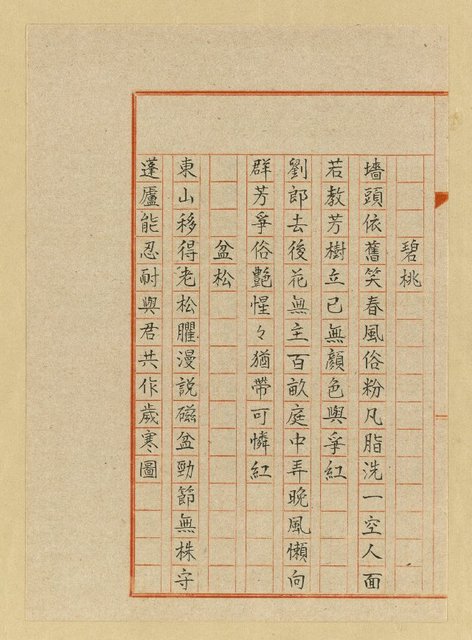 碧桃
墻頭依舊笑春風俗粉凡脂洗一空人面
若教芳樹立已無顔色與爭紅
劉郎去後花無主百畝庭中弄晚風懶向
群芳爭俗艷惺々猶帶可憐紅
盆松
東山移得老松臞漫説磁盆勁節無株守
蓬廬能忍耐與君共作歲寒圖